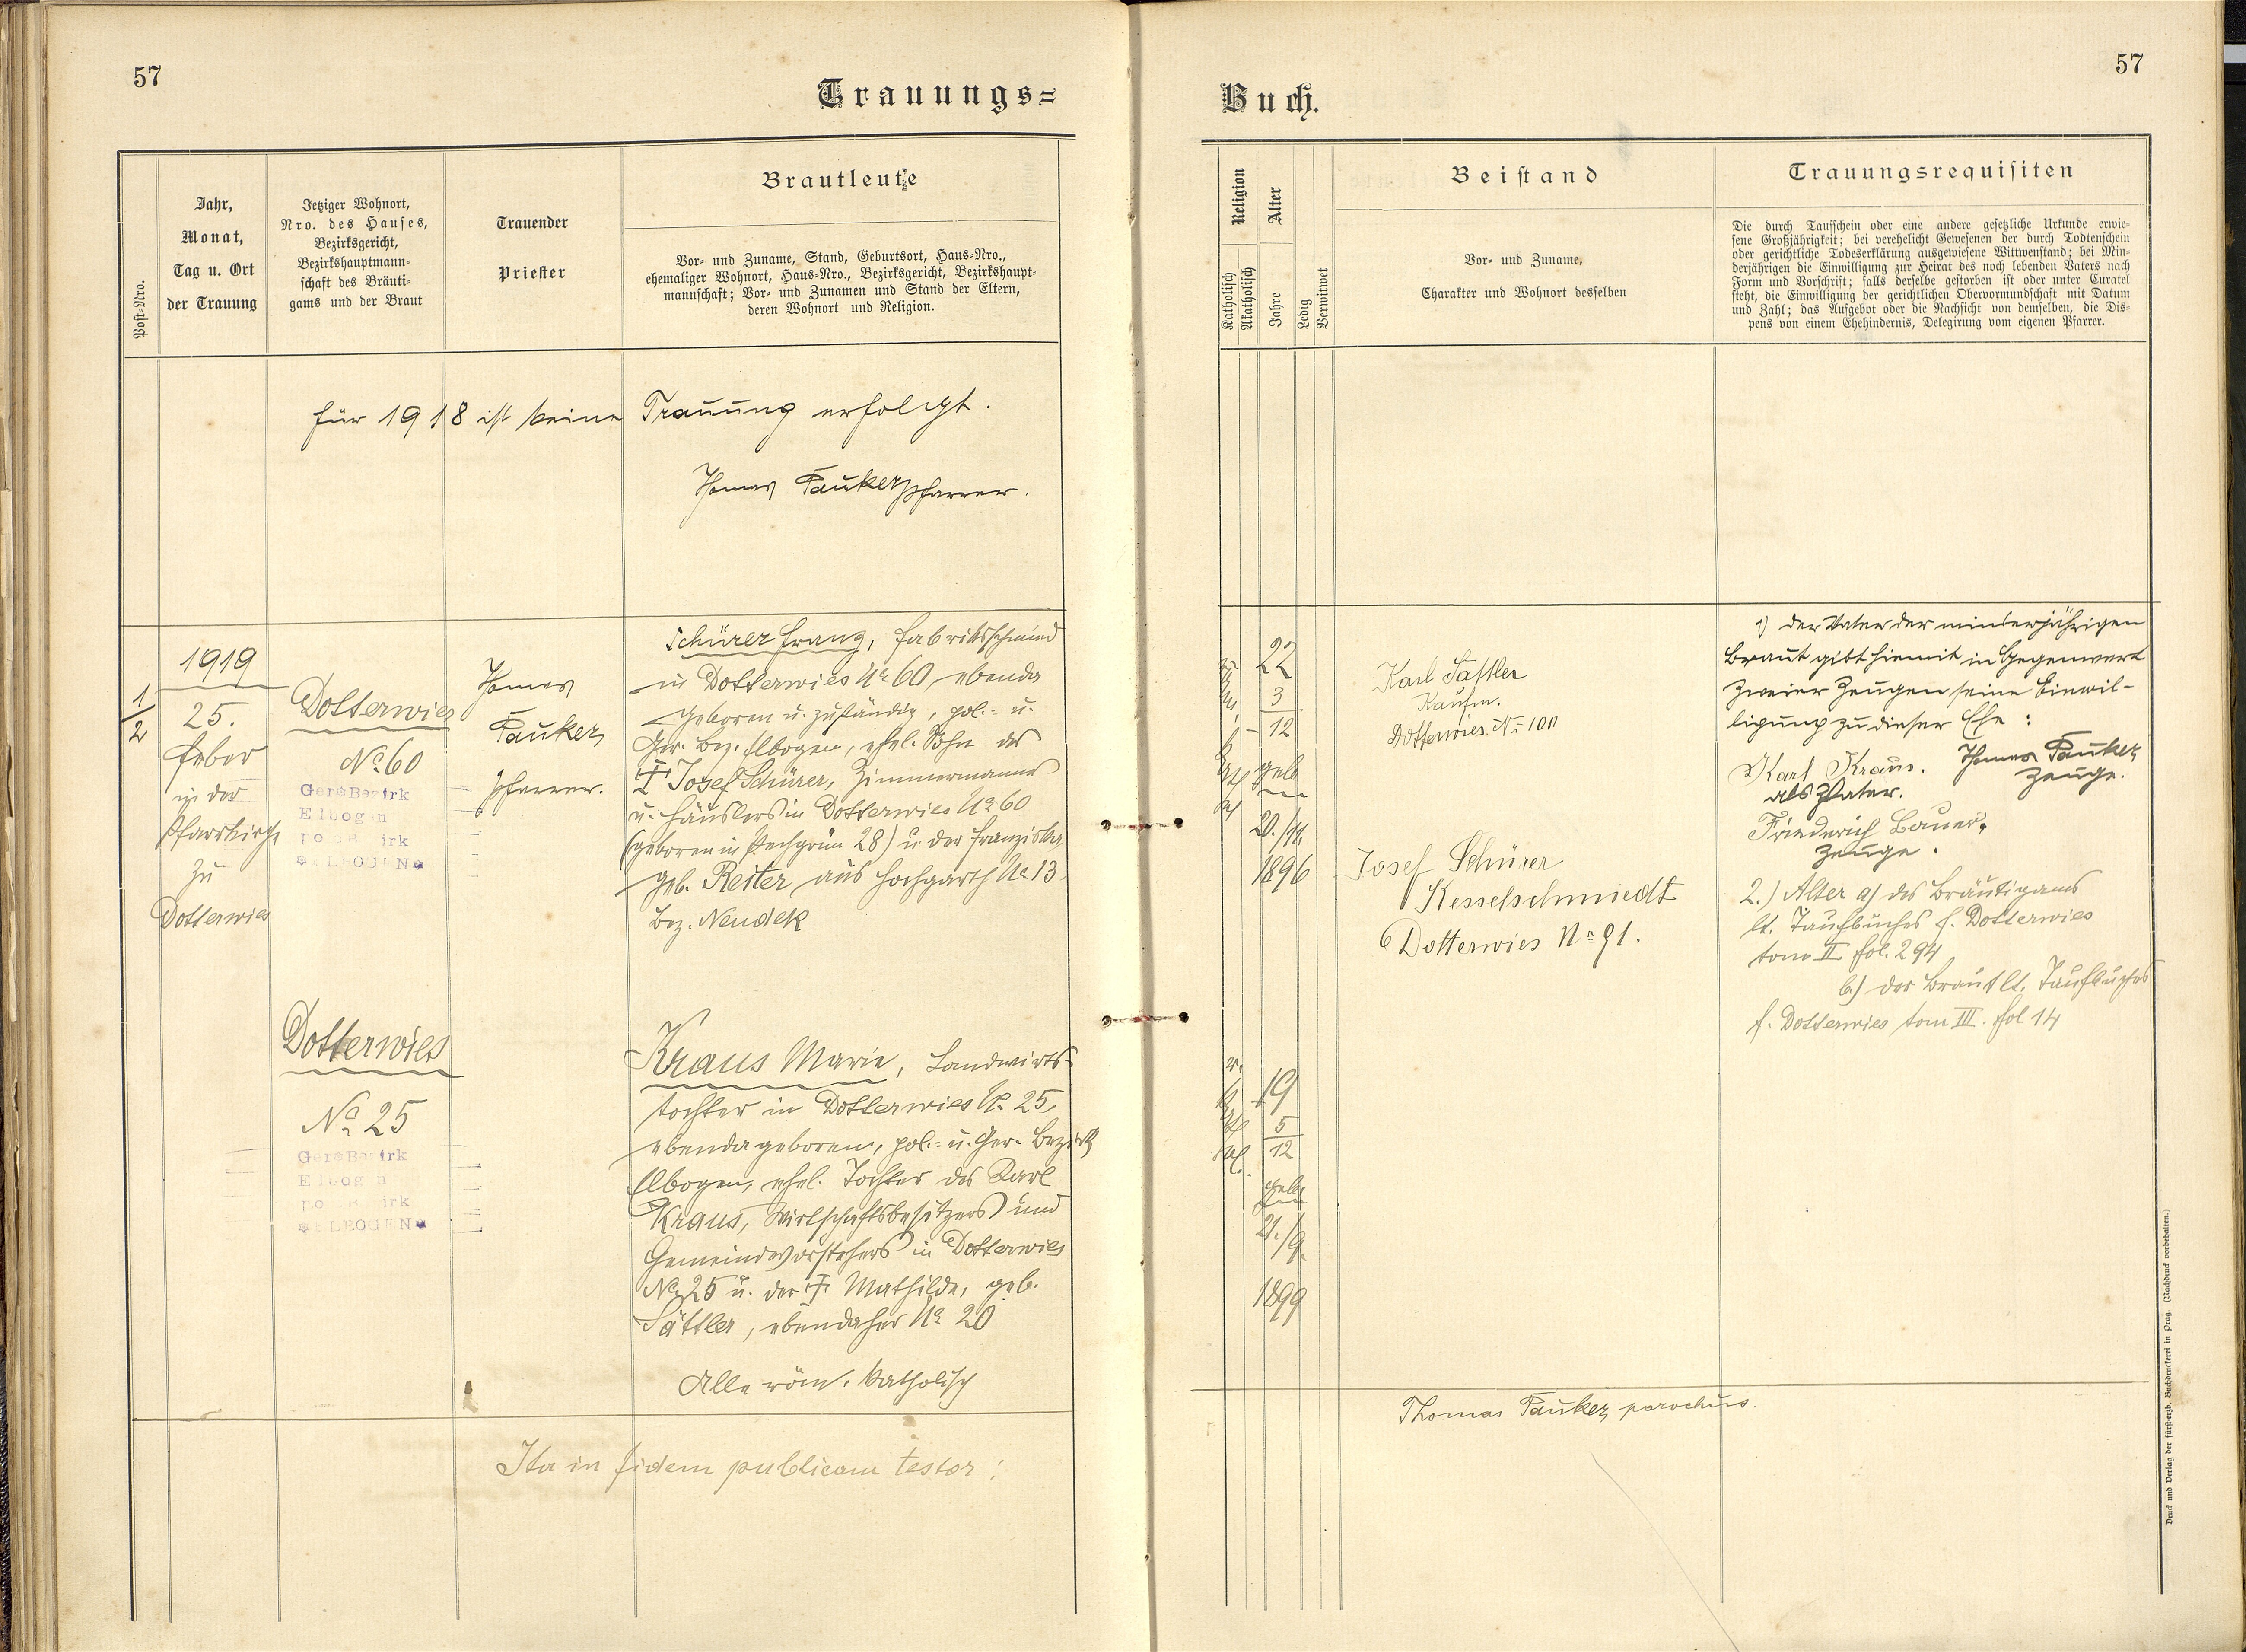 57
Trauungs=
Post-Nro.
Jahr,
Monat,
Tag u. Ort
der Trauung
Jetziger Wohnort,
Nro. des Hauses,
Bezirksgericht,
Bezirkshauptmann-
schaft des Bräuti-
gams und der Braut
Trauender
Priester
Brautleute
Vor- und Zuname, Stand, Geburtsort, Haus-Nro.,
ehemaliger Wohnort, Haus-Nro., Bezirksgericht, Bezirkshaupt-
mannschaft; Vor- und Zunamen und Stand der Eltern,
deren Wohnort und Religion.
für 1918 ist keine Trauung erfolgt.
Thomas Pauker Pfarrer.
1/2
1919
25.
Feber
in der
Pfarrkirche
zu
Dotterwies
Dotterwies
No 60
Ger. Bezirk
Elbogen
pol. Bezirk
ELBOGEN
Thomas
Pauker,
Pfarrer.
Schürer Franz, Fabriksschmied
in Dotterwies No 60, ebenda
geboren u. zuständig, pol.- u.
Ger. Bez. Elbogen, ehel. Sohn des
† Josef Schürer, Zimmermanns
u. Häuslers in Dotterwies No 60
(geboren in Pechgrün 28) u. der Franziska
geb. Reiter aus Hochgarth No 13
Bez. Neudek
Dotterwies
No 25
Ger. Bezirk
Elbogen
pol. Bezirk
ELBOGEN
Kraus Marie, Landwirts-
tochter in Dotterwies No 25,
ebenda geboren, pol.- u. Ger. Bezirk
Elbogen, ehel. Tochter des Karl
Kraus, Wirtschaftsbesitzers und
Gemeindevorstehers in Dotterwies
No 25 u. der † Mathilde, geb.
Sattler, ebendaher No 20
Alle röm. katholisch
Ita in fidem publicam testor:
57
Buch.
Religion
Katholisch
Akatholisch
Alter
Jahre
Ledig
Verwitwet
Beistand
Vor- und Zuname,
Charakter und Wohnort desselben
Trauungsrequisiten
Die durch Taufschein oder eine andere gesetzliche Urkunde erwie-
sene Großjährigkeit; bei verehelicht Gewesenen der durch Todtenschein
oder gerichtliche Todeserklärung ausgewiesene Wittwenstand; bei Min-
derjährigen die Einwilligung zur Heirat des noch lebenden Vaters nach
Form und Vorschrift; falls derselbe gestorben ist oder unter Curatel
steht, die Einwilligung der gerichtlichen Obervormundschaft mit Datum
und Zahl; das Aufgebot oder die Nachsicht von demselben, die Dis-
pens von einem Ehehindernis, Delegirung vom eigenen Pfarrer.
22
3
12
geb
20./11.
1896
Karl Sattler
Kaufm.
Dotterwies No 100
Josef Schürer
Kesselschmiedt
Dotterwies No 91.
1) Der Vater der minderjährigen
Braut gibt hiemit in Gegenwart
zweier Zeugen seine Einwil-
ligung zu dieser Ehe:
Karl Kraus.
als Vater.
Thomas Pauker,
Zeuge.
Friederich Bauer,
Zeuge.
2.) Alter a) des Bräutigams
lt. Taufbuches f. Dotterwies
tom II fol. 294
b.) der Braut lt. Taufbuches
f. Dotterwies tom III. fol 14
19
5
12
geb.
21./9.
1899
Thomas Pauker, parochus.
Druck und Verlag der fürsterzb. Buchdruckerei in Prag. (Nachdruck vorbehalten.)